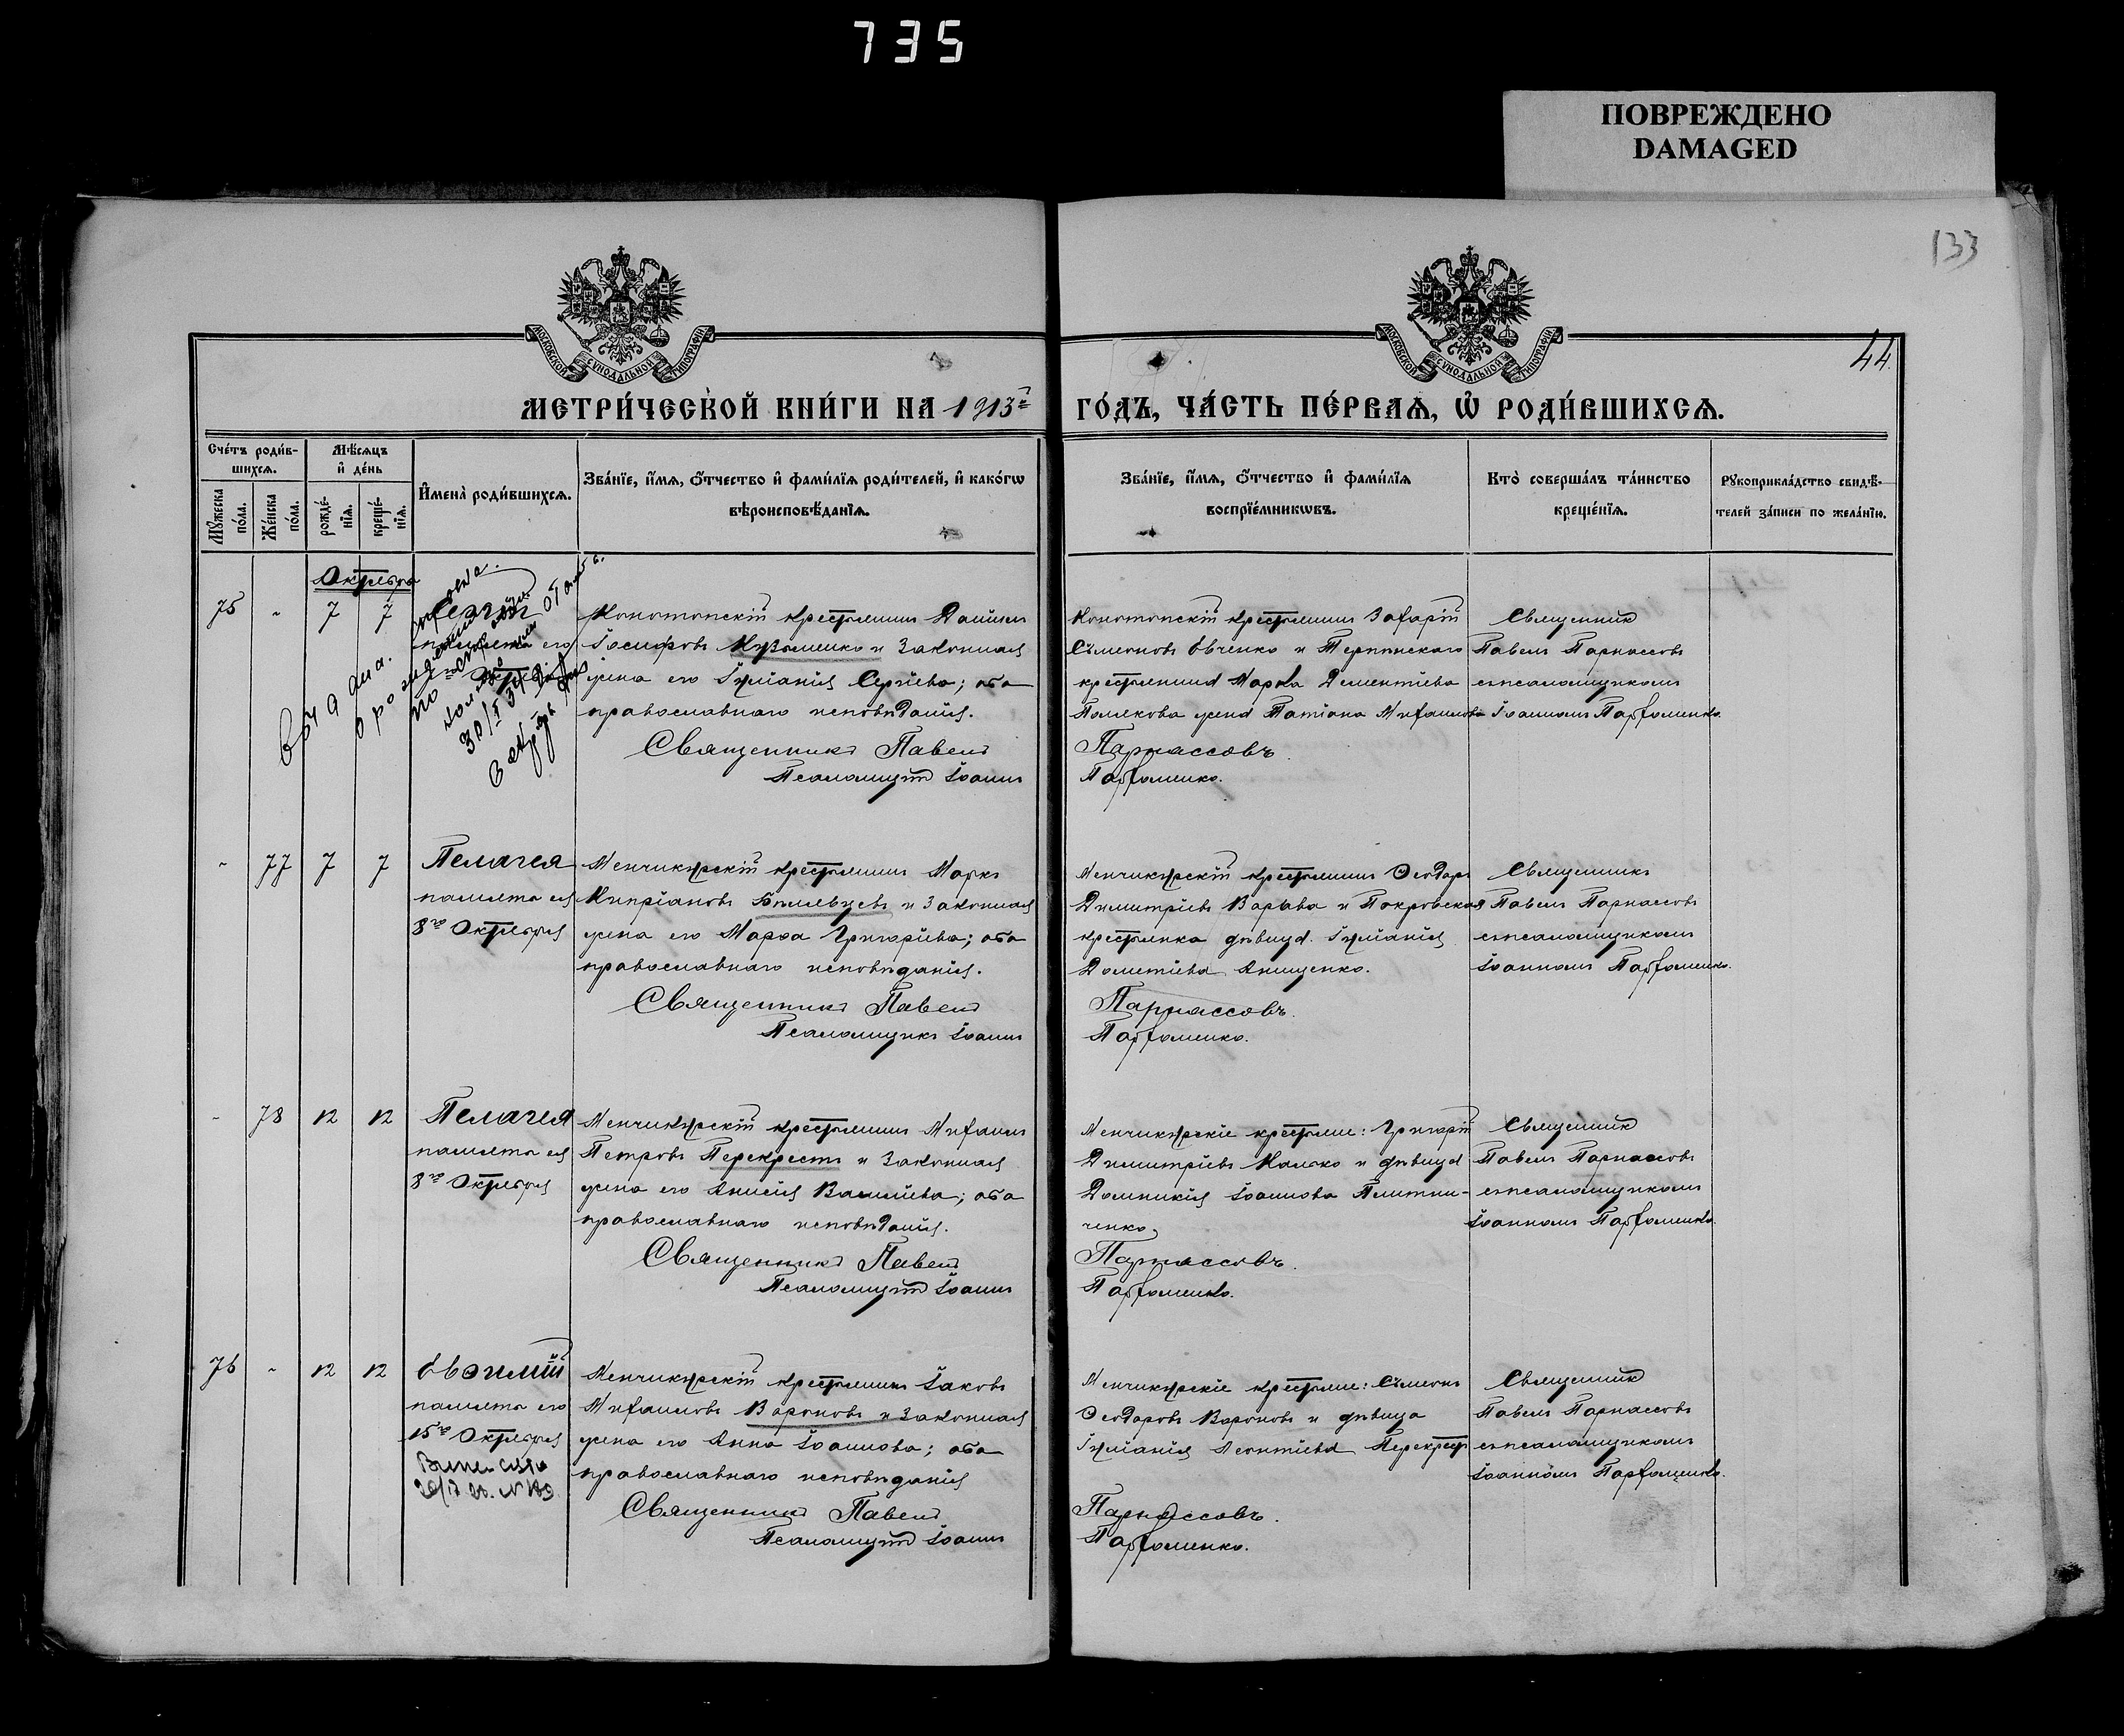 735
ПОВРЕЖДЕНО
DAMAGED
133
44.
МОСКОВСКОЙ СѴНОДАЛЬНОЙ ТИПОГРАФІИ
МОСКОВСКОЙ СѴНОДАЛЬНОЙ ТИПОГРАФІИ
МЕТРИ́ЧЕСКОЙ КНИ́ГИ НА 1913й ГО́ДЪ, ЧА́СТЬ ПЕ́РВАѦ, Ѡ҆ РОДИ́ВШИХСѦ.
Сче́тъ роди́в-
шихсѧ.
Мꙋ́жеска
по́ла.
Же́нска
по́ла.
Мѣ́сѧцъ
и҆ де́нь
рожде́-
нїѧ.
креще́-
нїѧ.
И҆мена̀ роди́вшихсѧ.
Зва́нїе, и҆́мѧ, ѻ҆́тчество и҆ фами́лїѧ роди́телей, и҆ како́гѡ
вѣроисповѣ́данїѧ.
Зва́нїе, и҆́мѧ, ѻ҆́тчество и҆ фами́лїѧ
воспрїе́мникѡвъ.
Кто̀ соверша́лъ та́инство
креще́нїѧ.
Рꙋкоприкла́дство свидѣ́-
телей за́писи по жела́нїю.
Октября
75 - 7 7 Сергій
память его
Конотопскій крестьянинъ Даніилъ
Іосифовъ Кузьменко и законная
жена его Іуліанія Сергіева; оба
православнаго исповѣданія.
Священникъ Павелъ
Псаломщикъ Іоаннъ
Конотопскій крестьянинъ Захарій
Сѵмеоновъ Овченко и
крестьянина Марка Дементіева
Полякова жена Татіана Михаилова
Парнассовъ.
Парфоменко.
Священникъ
Павелъ Парнассовъ
съ псаломщикомъ
Іоанномъ Парфоменко.
- 77 7 7 Пелагея
память ея
8го Октября
Менчикурскій крестьянинъ Маркъ
Кипріановъ и законная
жена его Марѳа Григоріева; оба
православнаго исповѣданія.
Священникъ Павелъ
Псаломщикъ Іоаннъ
Менчикурскій крестьянинъ Ѳеодоръ
Димитріевъ Варава и Покровская
крестьянка дѣвица Іуліанія
Дометіева Онищенко.
Парнассовъ.
Парфоменко.
Священникъ
Павелъ Парнассовъ
съ псаломщикомъ
Іоанномъ Парфоменко.
- 78 12 12 Пелагея
память ея
8го Октября
Менчикурскій крестьянинъ Михаилъ
Петровъ Перекрестъ и законная
жена его Анисія Василіева; оба
православнаго исповѣданія.
Священникъ Павелъ
Псаломщикъ Іоаннъ
Менчикурскіе крестьяне: Григорій
Димитріевъ и дѣвица
Домникія Іоаннова
ченко.
Парнассовъ.
Парфоменко.
Священникъ
Павелъ Парнассовъ
съ псаломщикомъ
Іоанномъ Парфоменко.
76 - 12 12 Евѳимій
память его
15го Октября
Менчикурскій крестьянинъ Іаковъ
Михаиловъ Вороновъ и законная
жена его Анна Іоаннова; оба
православнаго исповѣданія
Священникъ Павелъ
Псаломщикъ Іоаннъ
Менчикурскіе крестьяне: Сѵмеонъ
Ѳеодоровъ Вороновъ и дѣвица
Іуліанія Леонтіева Перекрестъ
Парнассовъ.
Парфоменко.
Священникъ
Павелъ Парнассовъ
съ псаломщикомъ
Іоанномъ Парфоменко.